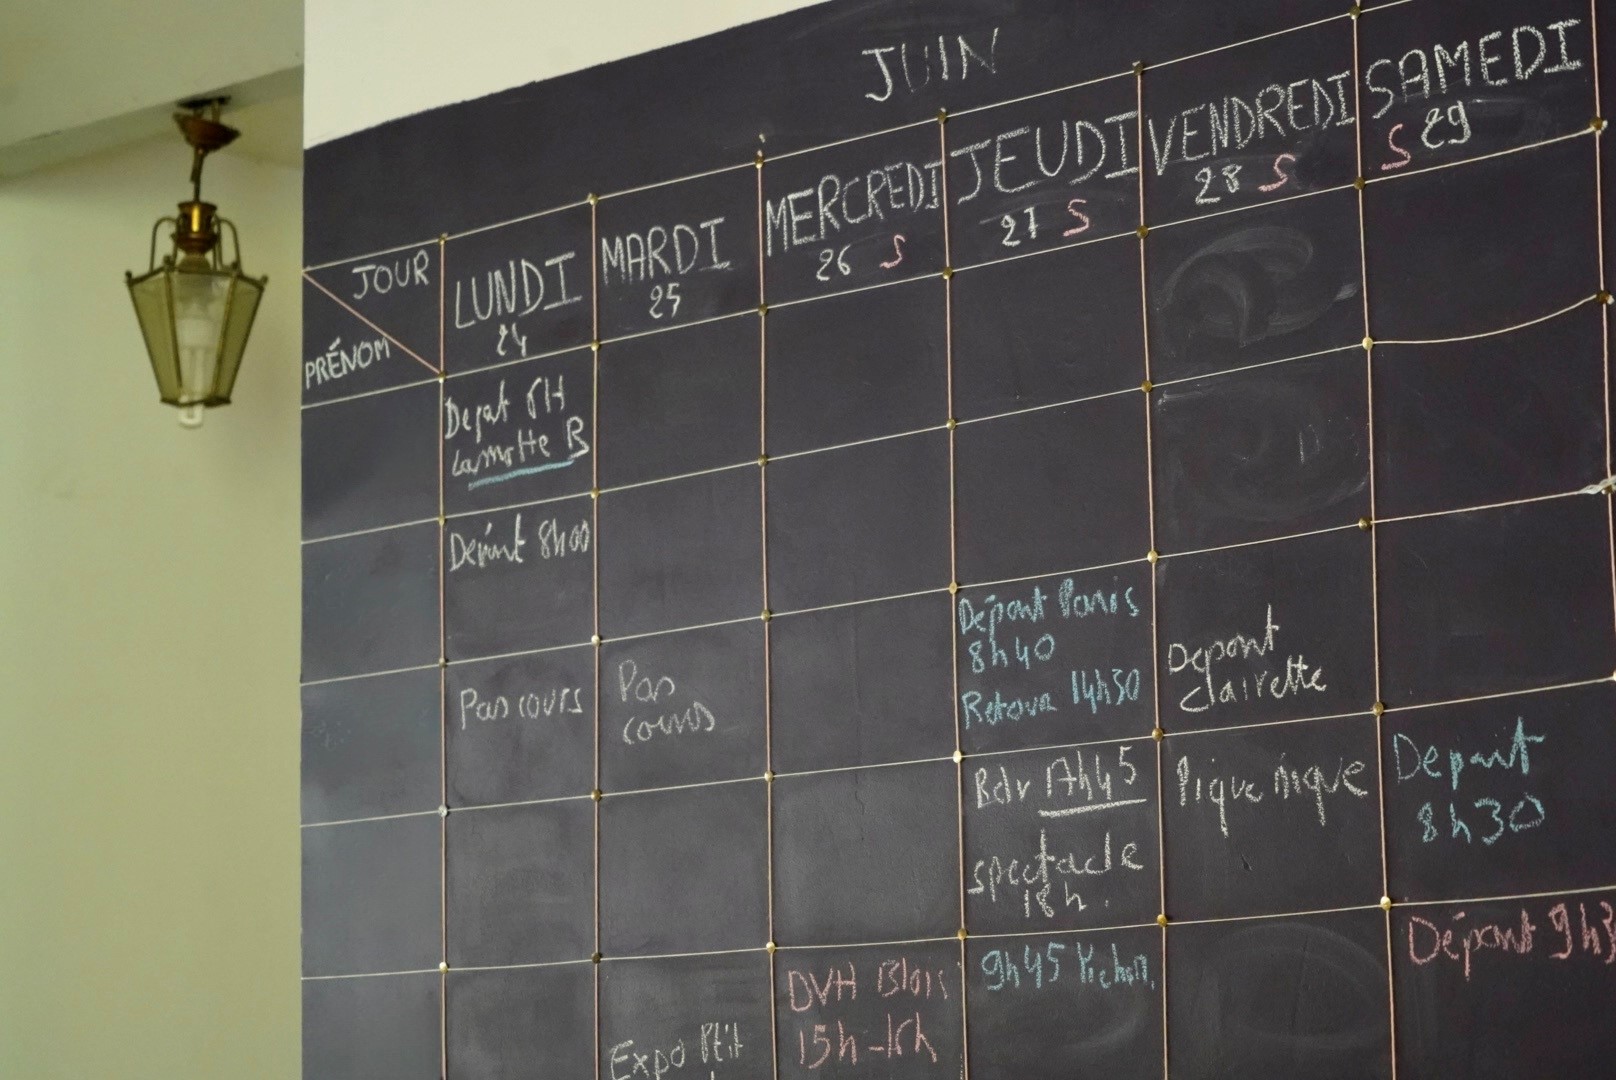 JUIN
JOUR
PRÉNOM
LUNDI
24
MARDI
25
MERCREDI
26 S
JEUDI
27 S
VENDREDI
28 S
SAMEDI
S 29
Depat
Lamotte B
Départ 8h00
Départ Paris
8h40
Retour 14h30
Depart
Clairette
Pas cours
Pas
cours
Rdv
spectacle
18h.
Pique nique
Depart
8h30
Expo
DVH Blois
15h-16h
9h45
Départ 9h3